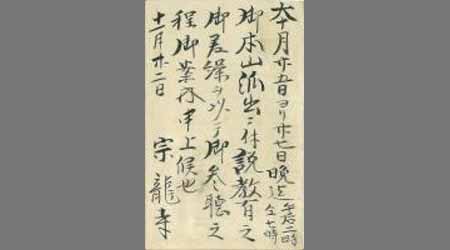 本月廿五日ヨリ廿七日晩迄 午后二時
仝七時
御本山派出ニ付説教有之
御差繰ヲ以テ御参聴之
程御案内申上候也
十二月廿二日
宗龍寺